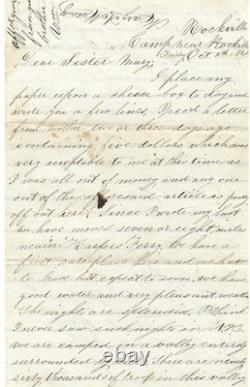 Rockville
Camp near Rockville
Friday Oct
Dear Sister Mary
I place my
paper upon a cheese box to day and
write you a few lines. I recd a letter
from mother two or three days ago
containing five dollars which was
very acceptable to me at this time as
I was all out of money and any one
out of the necessary article is poorly
off out here. Since I wrote my last
we have moved seven or eight miles
nearer Harpers Ferry. We have a
first rate place like and
to leave but expect to soon. We have
good water and very pleasant weather
The nights are splendid. I think
I never saw such nights in N.Y.
we are camped in a valley entirely
surrounded by There are nearly
sixty thousands of troops in this valley